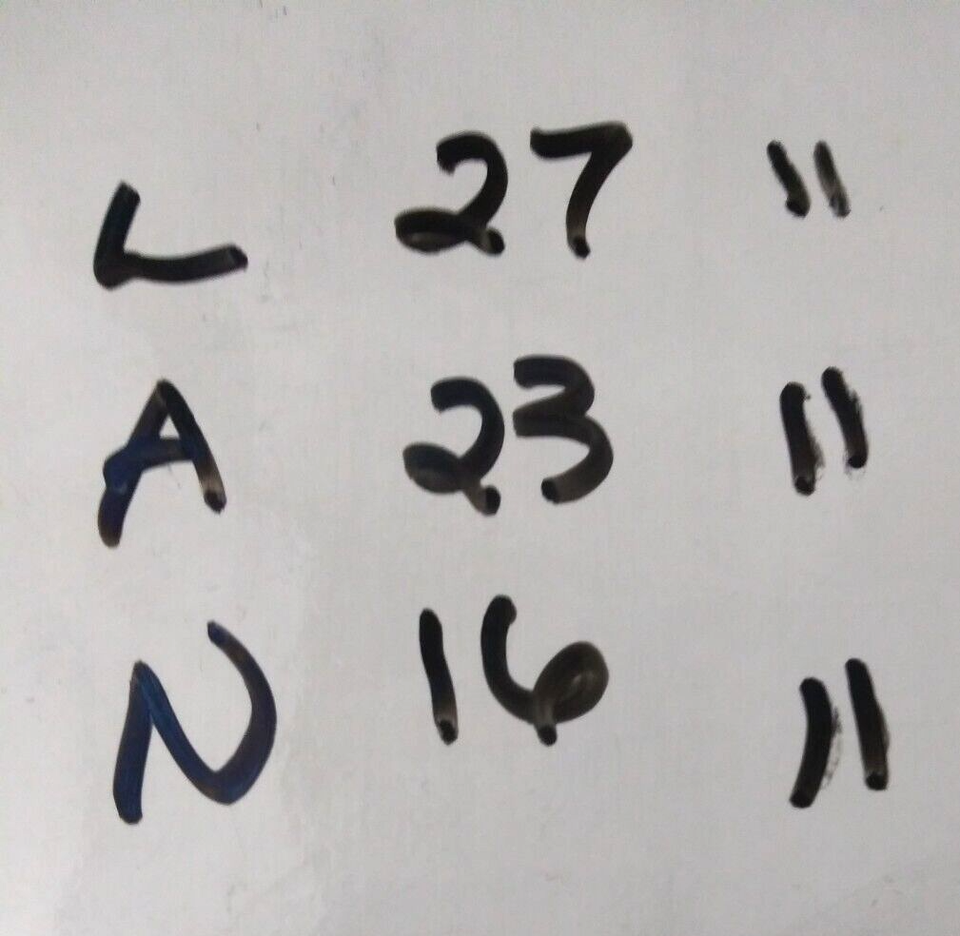 L 27 "
A 23 "
N 16 "